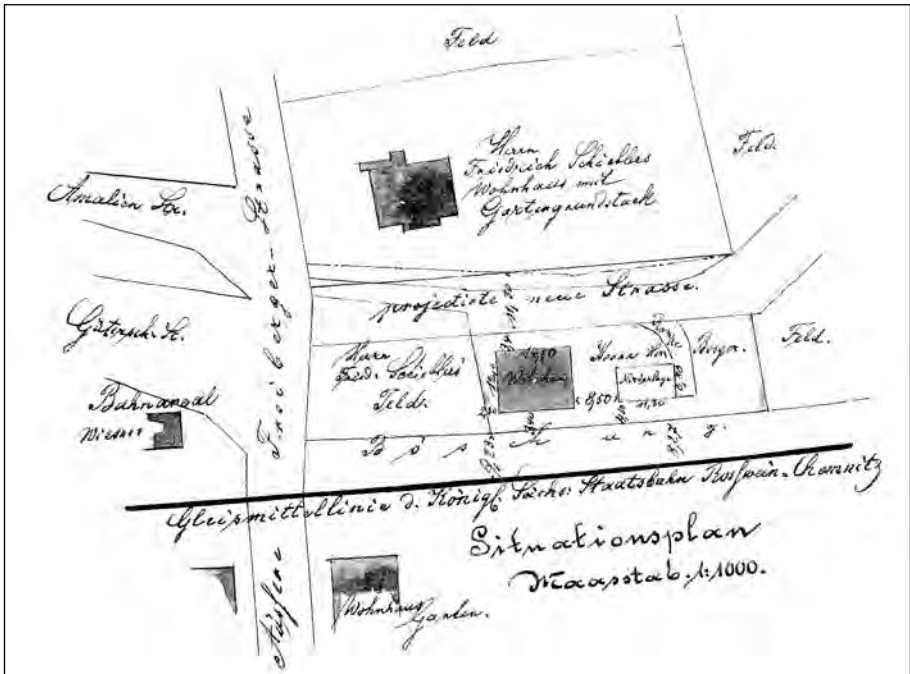 Feld
Herrn
Friedrich Schieblers
Wohnhaus mit
Gartengrundstück
Feld.
Amalien Str.
Äussere Freiberger-Strasse
projectirte neue Strasse.
Gütersch. St.
Herrn
Fried. Schieblers
Feld.
14,10
Wohnhaus
Herrn
Niederlage
11,80
8,50
Berger.
Feld.
Bahnareal
Wiesner
Böschung.
Gleismittellinie d. Königl. Sächs. Staatsbahn Rosswein-Chemnitz
Situationsplan
Maasstab. 1:1000.
Wohnhaus
Garten.